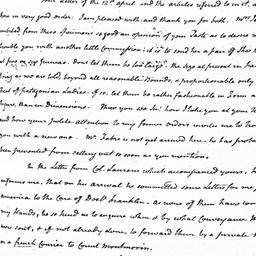 Letter of the 12th april and the articles referred to in it, a
in very good order. I am pleased with and thank you for both. Mrs. Ja
from these specimens so good an opinion of your Taste as to desire m
trouble you with another little Commission; it is to send her a pair of Shoe B
Dont let them be too large. The size at present in
as we are told beyond all reasonable Bounds, & proportionable only
of patagonian Ladies. If so, let them be rather fashionable in Form a
than in Dimensions. Thus you see Sir how I take you at your
and how your polite Attention to my former orders invites me to
you with a new one. Mr. Fabre is not yet arrived here. he has proba
been prevented from setting out so soon as you mention.
In the Letter from Col. Laurens which accompanied yours, h
informs me, that on his arrival he committed some Letters for me,
america to the Care of Doctr. Franklin. as none of them have com
my Hands, be so kind as to enquire when & by what Conveyance
sent, & if not already done, to forward them by a private
a french Courier to Count Montmorin.